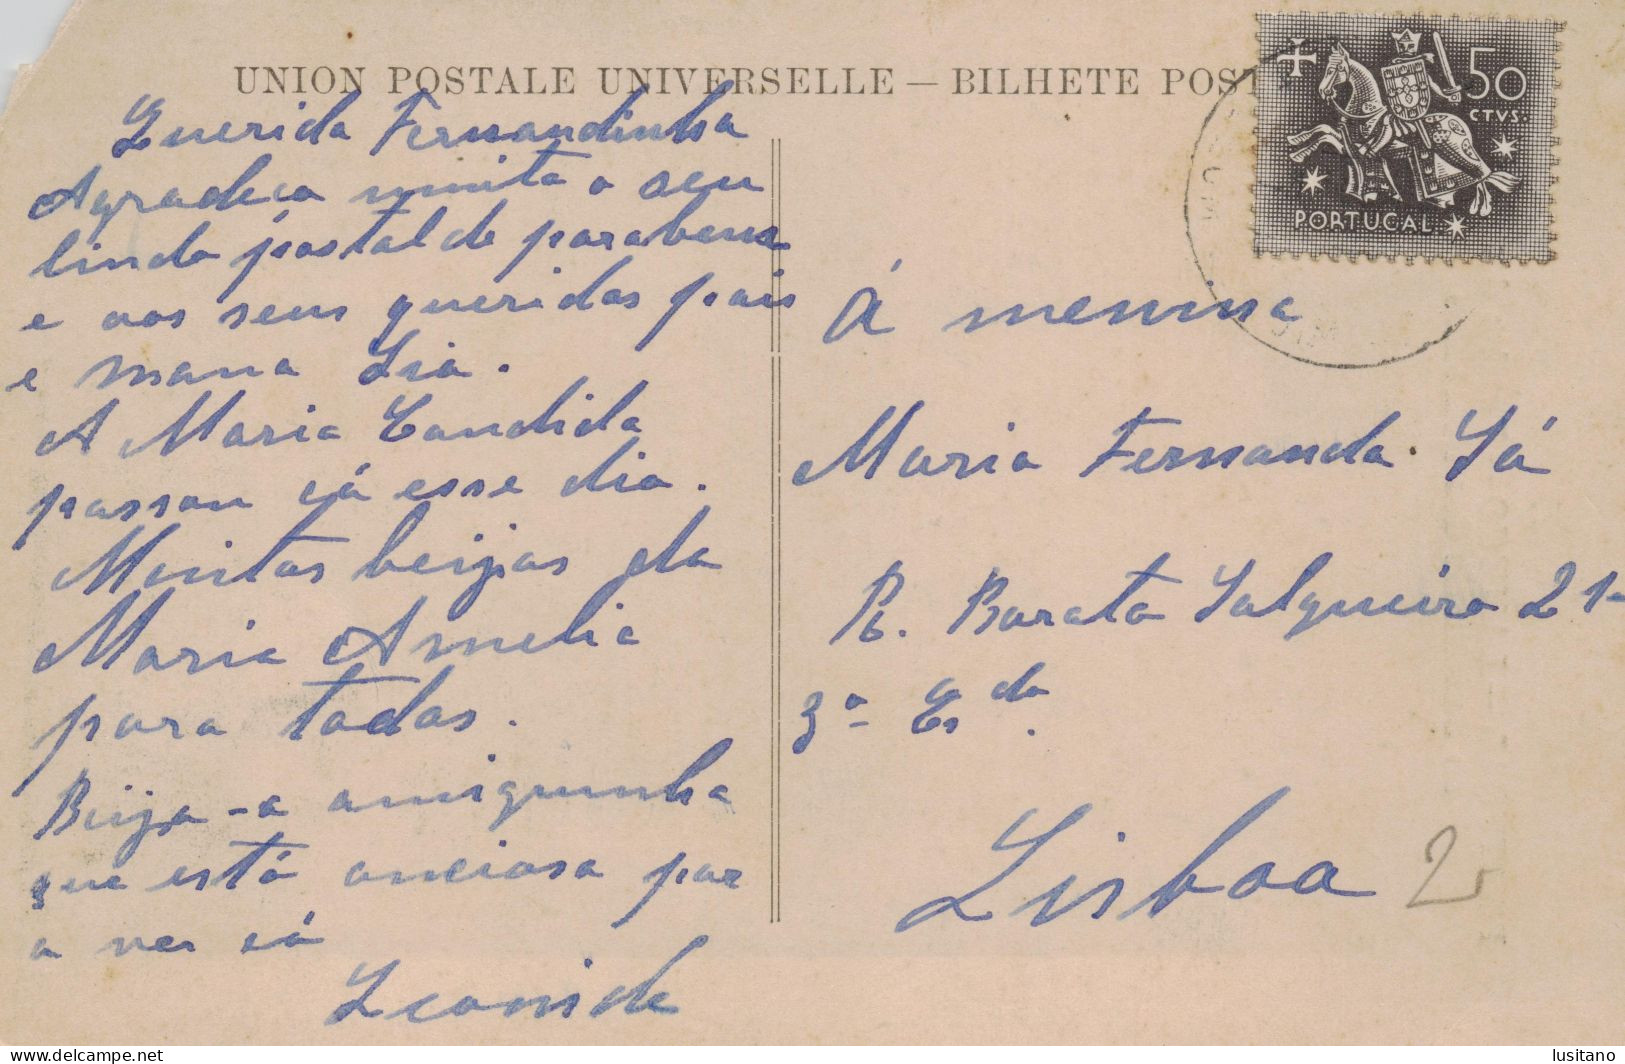 UNION POSTALE UNIVERSELLE — BILHETE POST
Querida Fernandinha
Agradeço muito o seu
lindo postal de parabens
e aos seus queridos pais
e mana Lia.
A Maria Candida
passou cá esse dia.
Muitos beijos da
Maria Amelia
para todos.
Beija-a amiguinha
que está anciosa por
a ver cá
Leonida
50
CTVS.
PORTUGAL
Á menina
Maria Fernanda Sá
R. Barata Salgueiro 21-
3º Esdo.
Lisboa
2
delcampe.net
lusitano